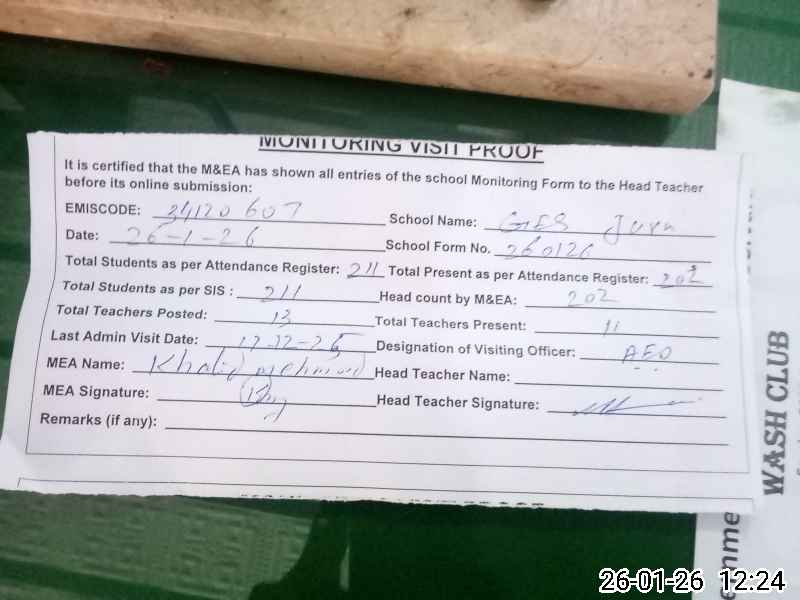 MONITORING VISIT PROOF
It is certified that the M&EA has shown all entries of the school Monitoring Form to the Head Teacher
before its online submission:
EMISCODE: 34120607 School Name: GES Jura
Date: 26-1-26 School Form No. 260126
Total Students as per Attendance Register: 211 Total Present as per Attendance Register: 202
Total Students as per SIS : 211 Head count by M&EA: 202
Total Teachers Posted: 13 Total Teachers Present: 11
Last Admin Visit Date: Designation of Visiting Officer: AEO
MEA Name: Khalid Mehmood Head Teacher Name:
MEA Signature: Head Teacher Signature:
Remarks (if any):
WASH CLUB
26-01-26 12:24